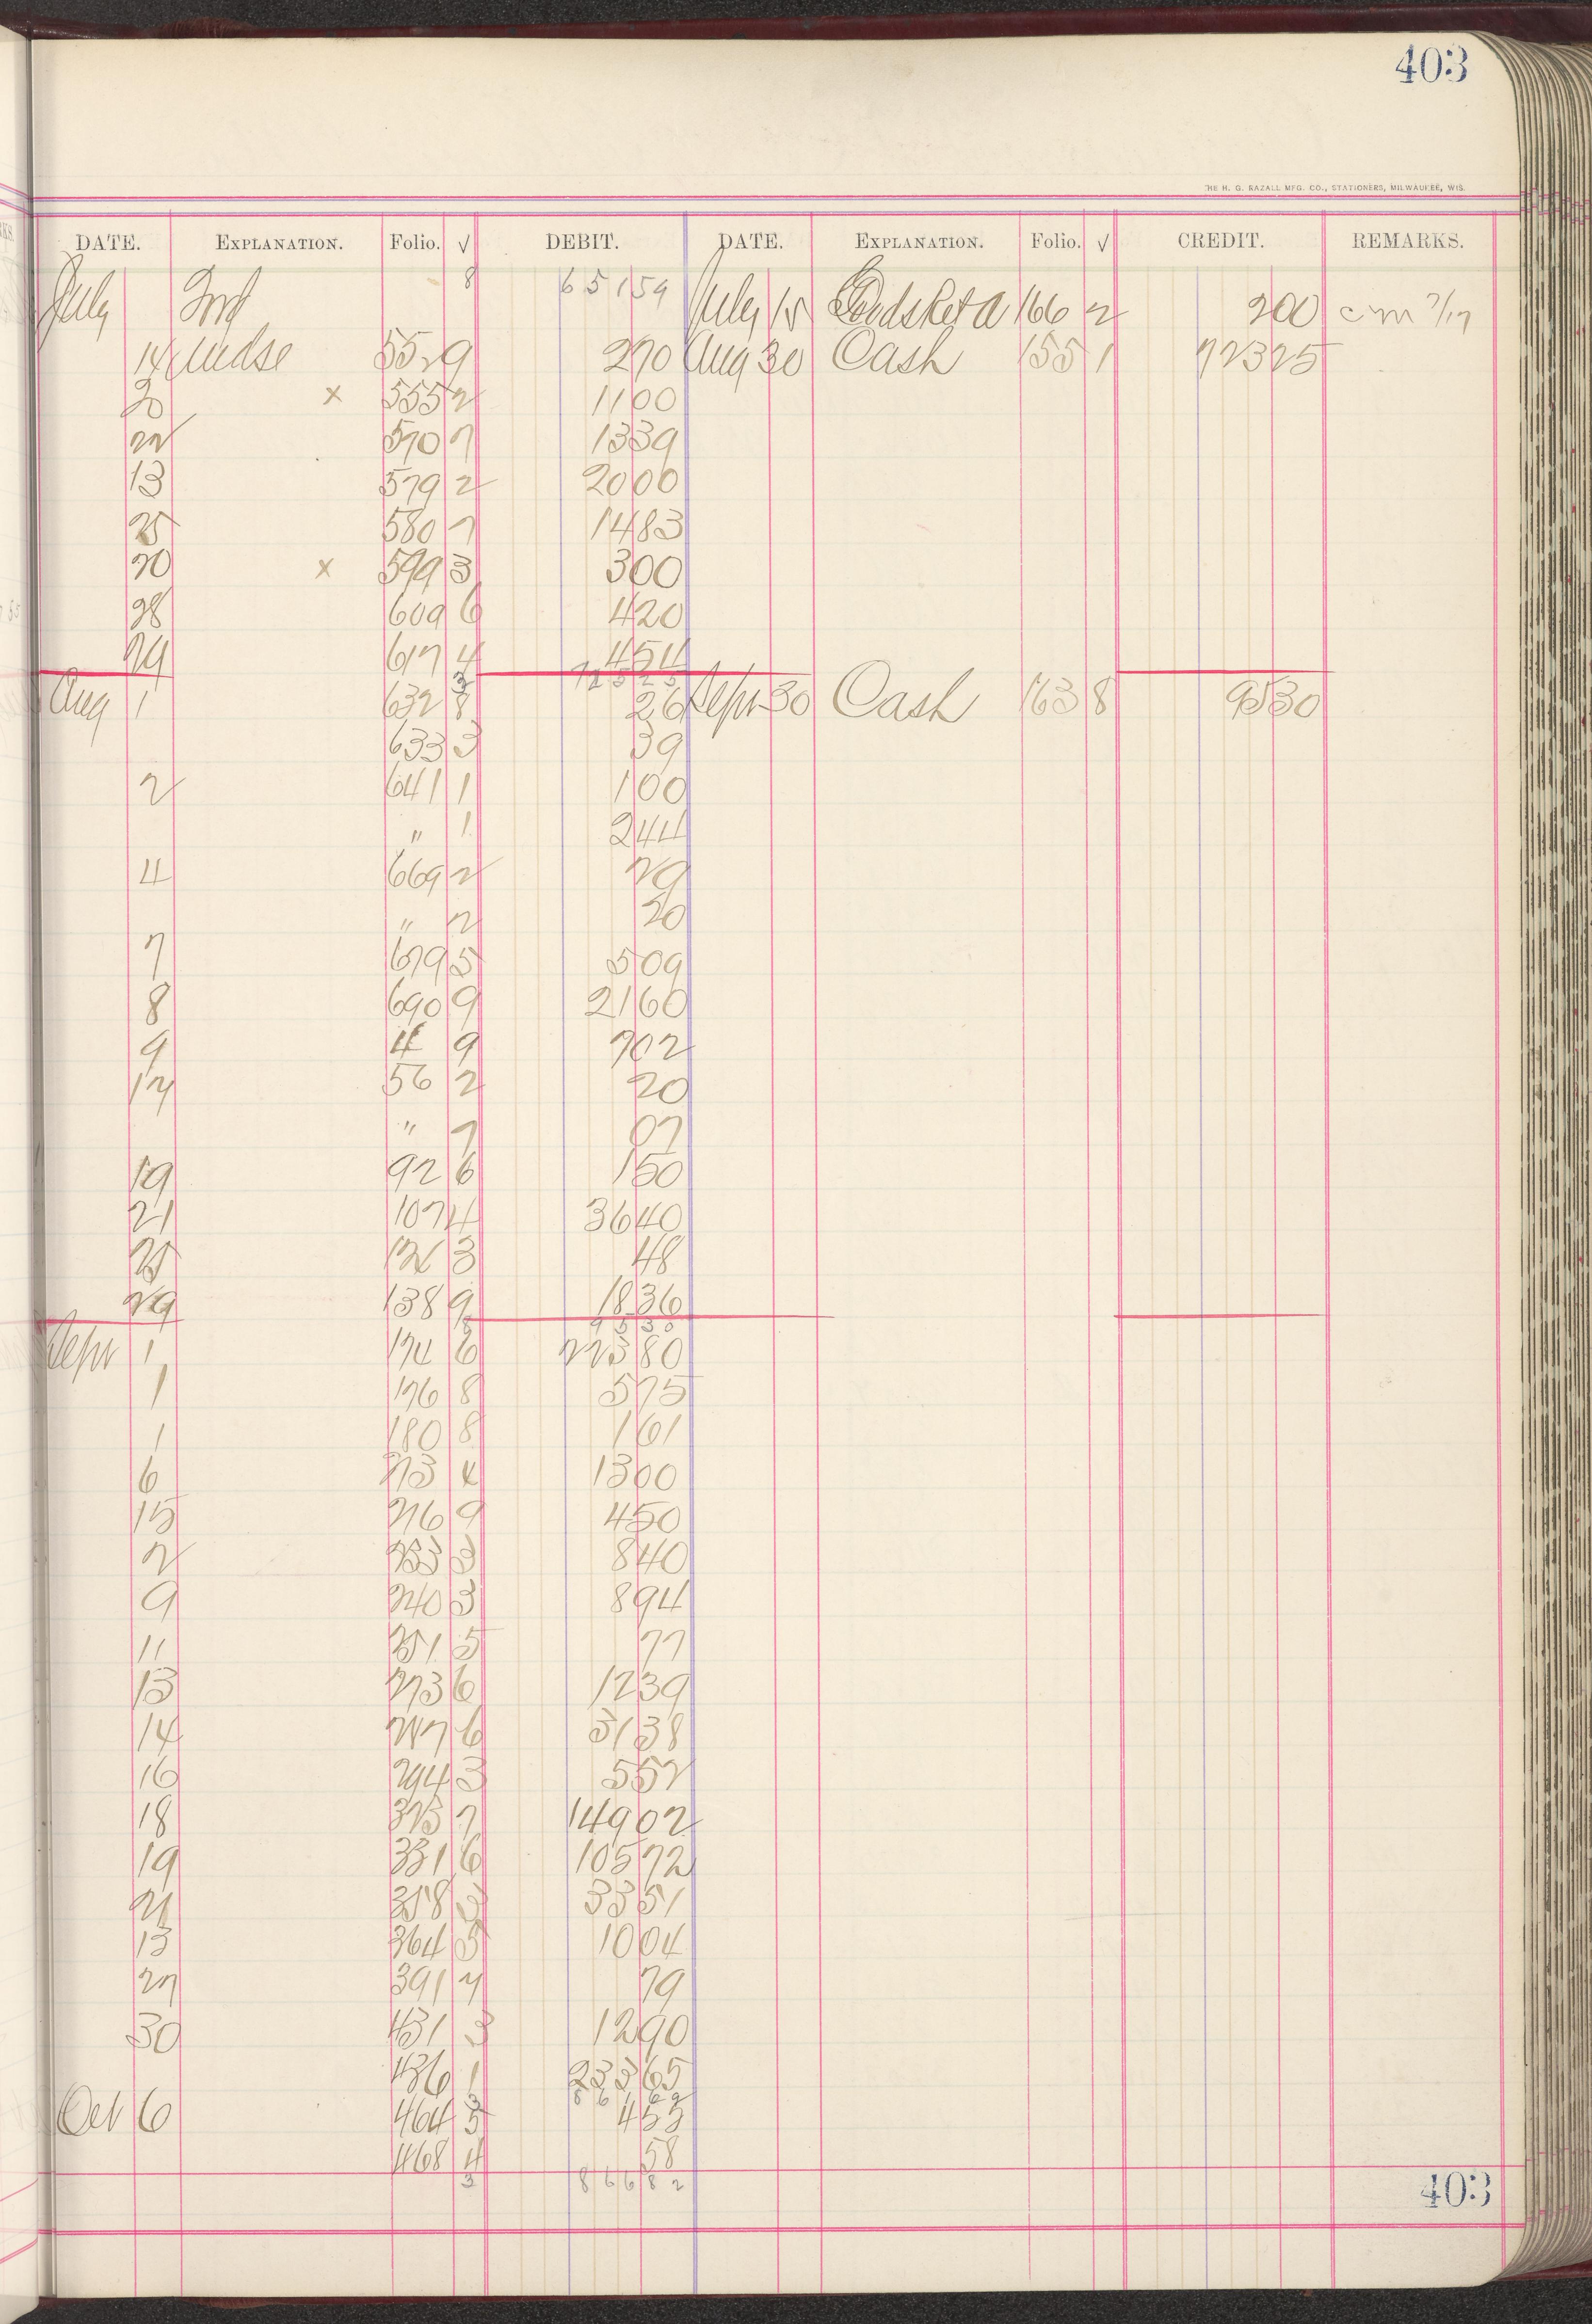 403
THE H. G. RAZALL MFG. CO., STATIONERS, MILWAUKEE, WIS.
DATE. EXPLANATION. Folio. √ DEBIT. DATE. EXPLANATION. Folio. √ CREDIT. REMARKS.
July 8 65159 July 15 166 2 200 cm 7/17
14 Mdse 552 9 270 Aug 30 Cash 155 1 72325
20 x 555 2 1100
22 570 7 1339
13 579 2 2000
25 580 7 1483
20 x 599 3 300
28 609 6 420
29 617 4 454
72525
Aug 1 632 8 26 Sept 30 Cash 163 8 9530
633 3 39
2 641 1 100
" 1 244
4 669 2 29
" 2 20
7 679 5 509
8 690 9 2160
9 4 9 702
17 56 2 20
" 7 07
19 92 6 150
21 107 4 3640
25 126 3 48
29 138 9 1836
9530
Sept 1 174 6 22380
1 176 8 575
1 180 8 161
6 213 4 1300
15 216 9 450
2 233 3 840
9 240 3 894
11 251 5 77
13 273 6 1239
14 277 6 5138
16 294 3 552
18 325 7 14902
19 331 6 10572
21 358 3 3351
13 364 5 1004
27 391 7 79
30 431 3 1290
436 1 23365
86169
Oct 6 464 5 453
468 4 58
3 86682
403